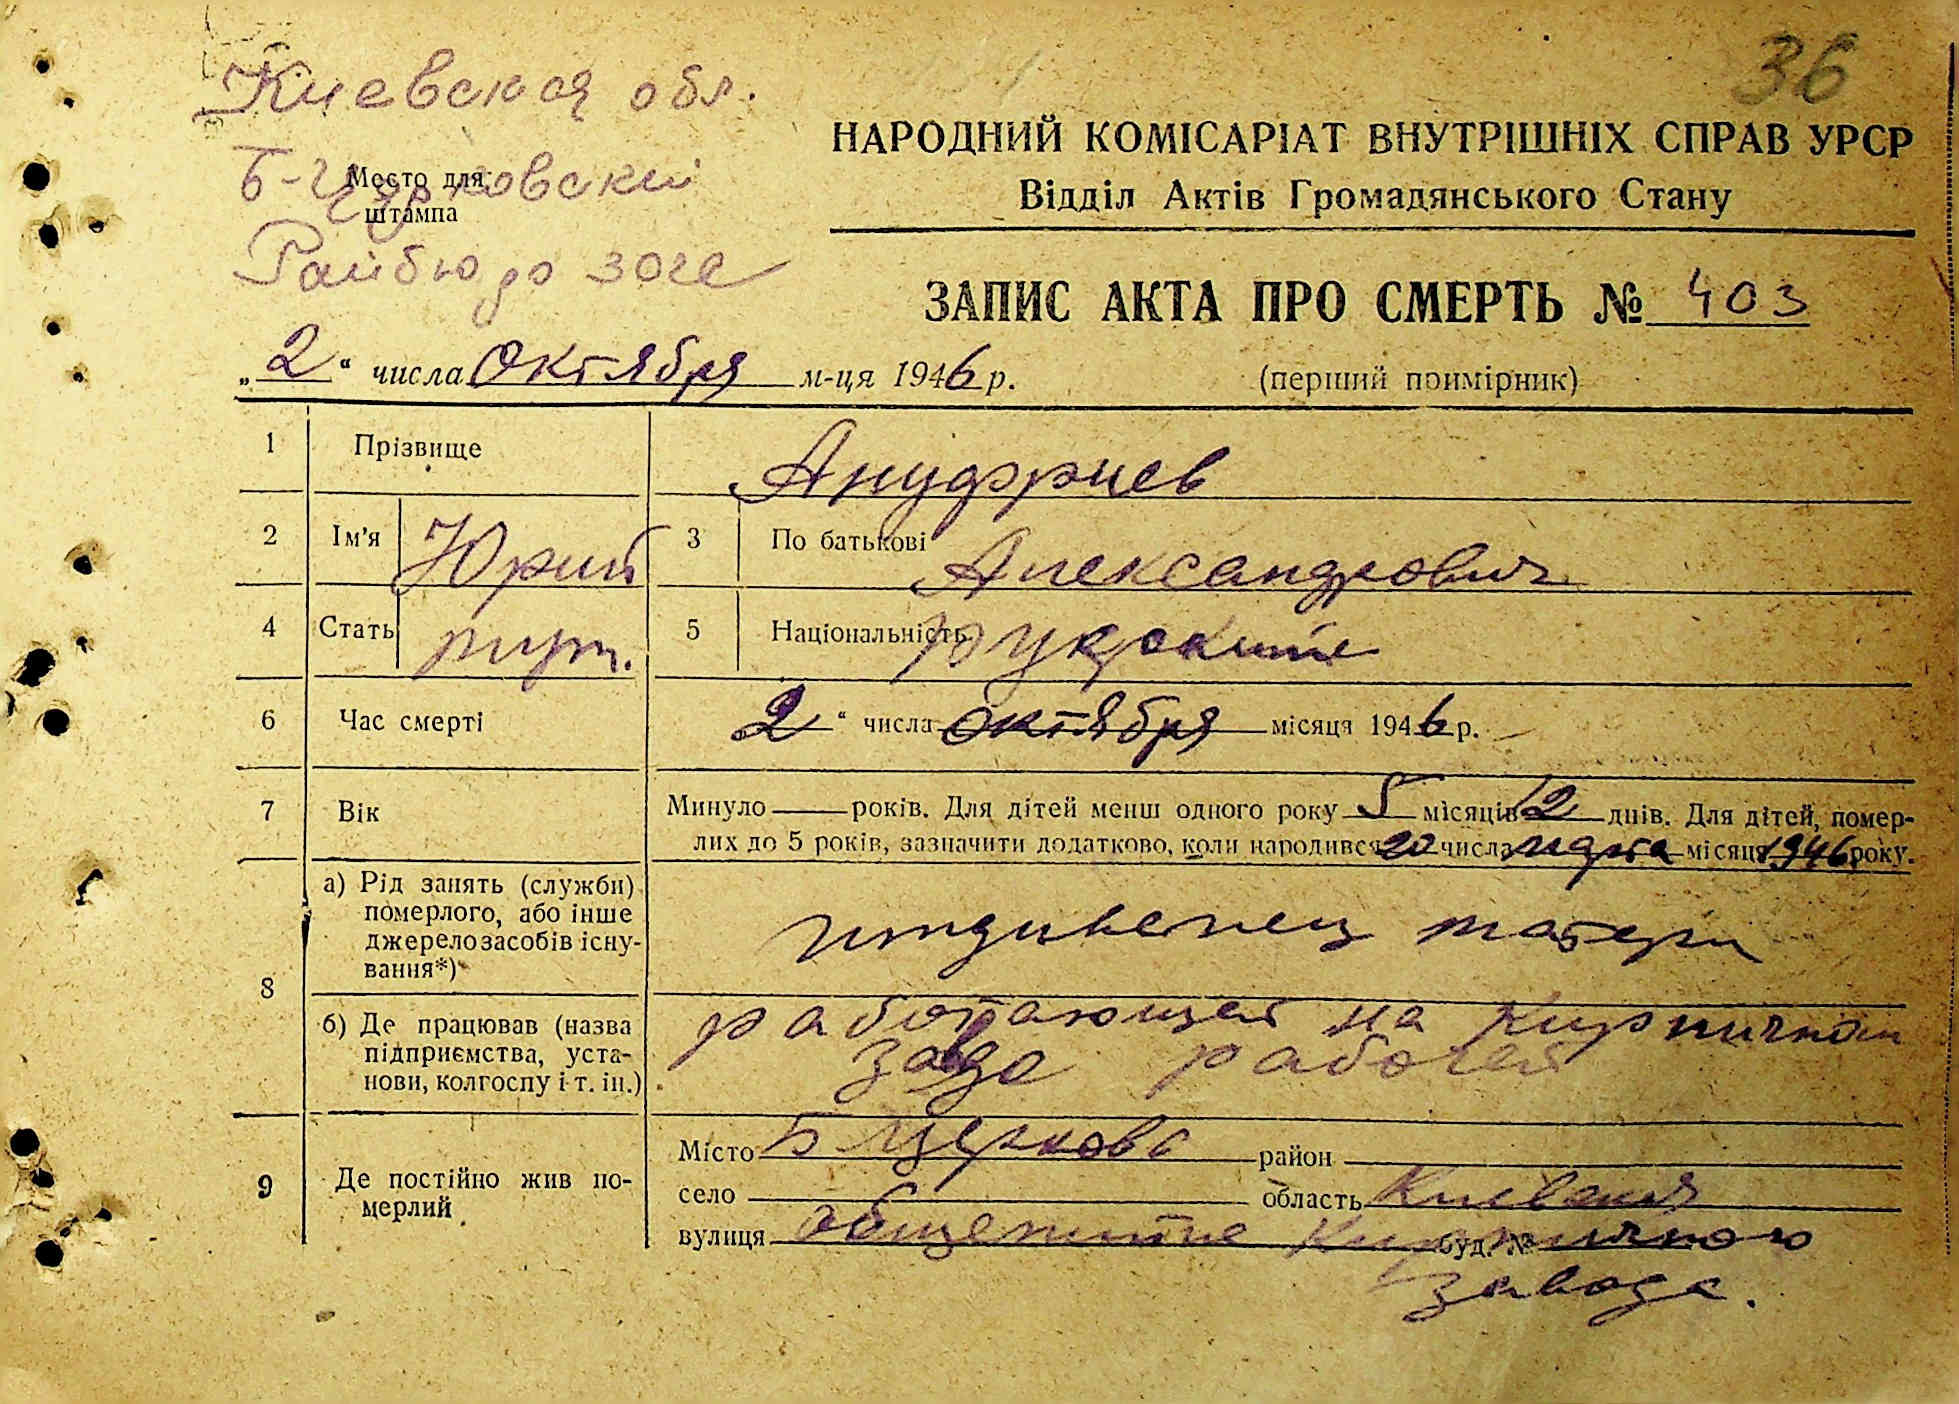 36
Киевская обл.
Б-Церковский
Место для
штампа
Райбюро загс
НАРОДНИЙ КОМІСАРІАТ ВНУТРІШНІХ СПРАВ УРСР
Відділ Актів Громадянського Стану
ЗАПИС АКТА ПРО СМЕРТЬ № 403
„2“ числа Октября м-ця 1946 р. (перший примірник)
1 Прізвище Ануфриев
2 Ім'я Юрий 3 По батькові Александрович
4 Стать муж. 5 Національність русский
6 Час смерті 2“ числа Октября місяця 1946 р.
7 Вік Минуло — років. Для дітей менш одного року 5 місяців 12 днів. Для дітей, помер-
лих до 5 років, зазначити додатково, коли народився 20 числа марта місяця 1946 року.
8 а) Рід занять (служби)
померлого, або інше
джерело засобів існу-
вання*)
иждивенец матери
б) Де працював (назва
підприємства, уста-
нови, колгоспу і т. ін.)
работающей на Кирпичном
заводе рабочей
9 Де постійно жив по-
мерлий
Місто Б Церковь район
село область Киевская
вулиця общежитие Кирпичного буд. №
завода.